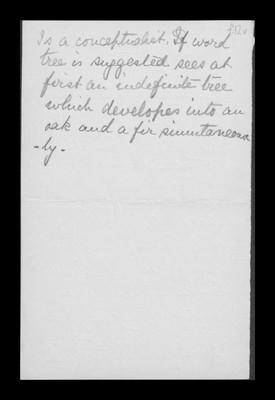 Is a conceptualist. If word
tree is suggested sees at
first an indefinite tree
which developes into an
oak and a fir simmtaneous
-ly-